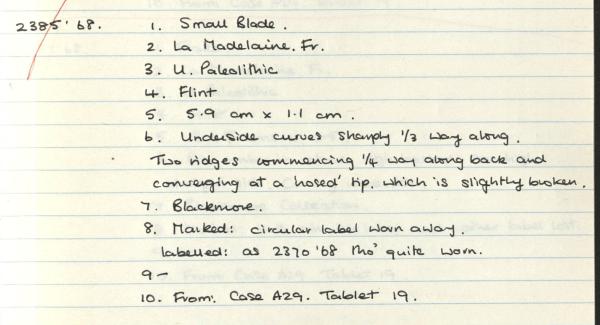 2385'68. 1. Small Blade.
2. La Madelaine. Fr.
3. U. Paleolithic
4. Flint
5. 5.9 cm x 1.1 cm.
6. Underside curves sharply 1/3 way along.
Two ridges commencing 1/4 way along back and
converging at a 'nosed' tip. which is slightly broken.
7. Blackmore.
8. Marked: circular label worn away.
labelled: as 2370 '68 tho' quite worn.
9 -
10. From: Case A29. Tablet 19.